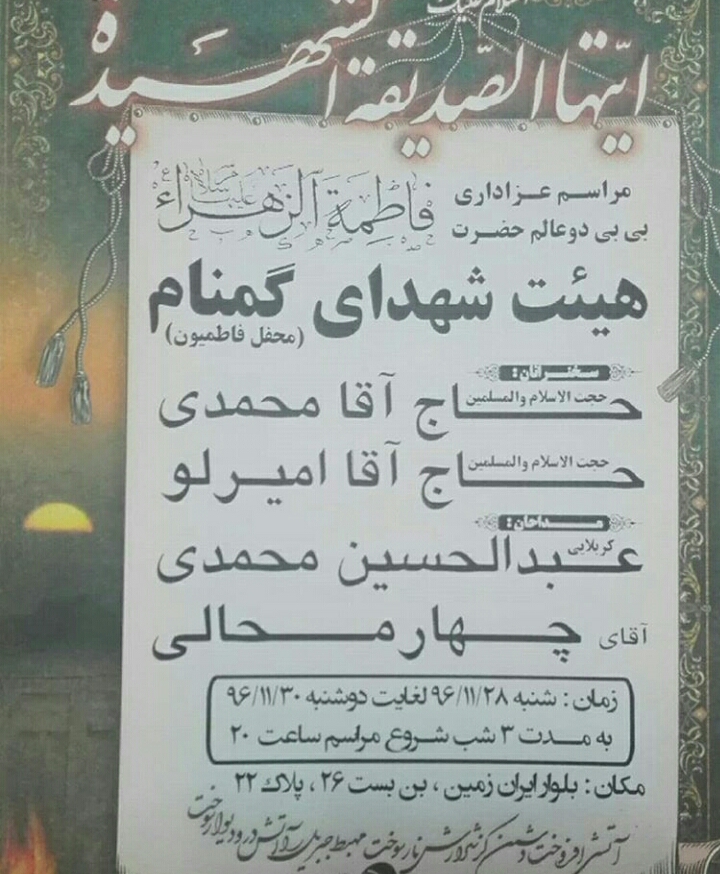 السلام علیک
ایتها الصدیقة الشهیده
مراسم عزاداری
بی بی دو عالم حضرت
فاطمة الزهراء
سلام علیها
هیئت شهدای گمنام
(محفل فاطمیون)
سخنرانان:
حجت الاسلام والمسلمین
حاج آقا محمدی
حجت الاسلام والمسلمین
حاج آقا امیرلو
مداحان:
کربلایی
عبدالحسین محمدی
آقای چهارمحالی
زمان: شنبه ۹۶/۱۱/۲۸ لغایت دوشنبه ۹۶/۱۱/۳۰
به مدت ۳ شب شروع مراسم ساعت ۲۰
مکان: بلوار ایران زمین، بن بست ۲۶، پلاک ۲۲
آتشی افروخت دشمن کز شرارش نار سوخت مهبط جبریل از آتش در و دیوار سوخت